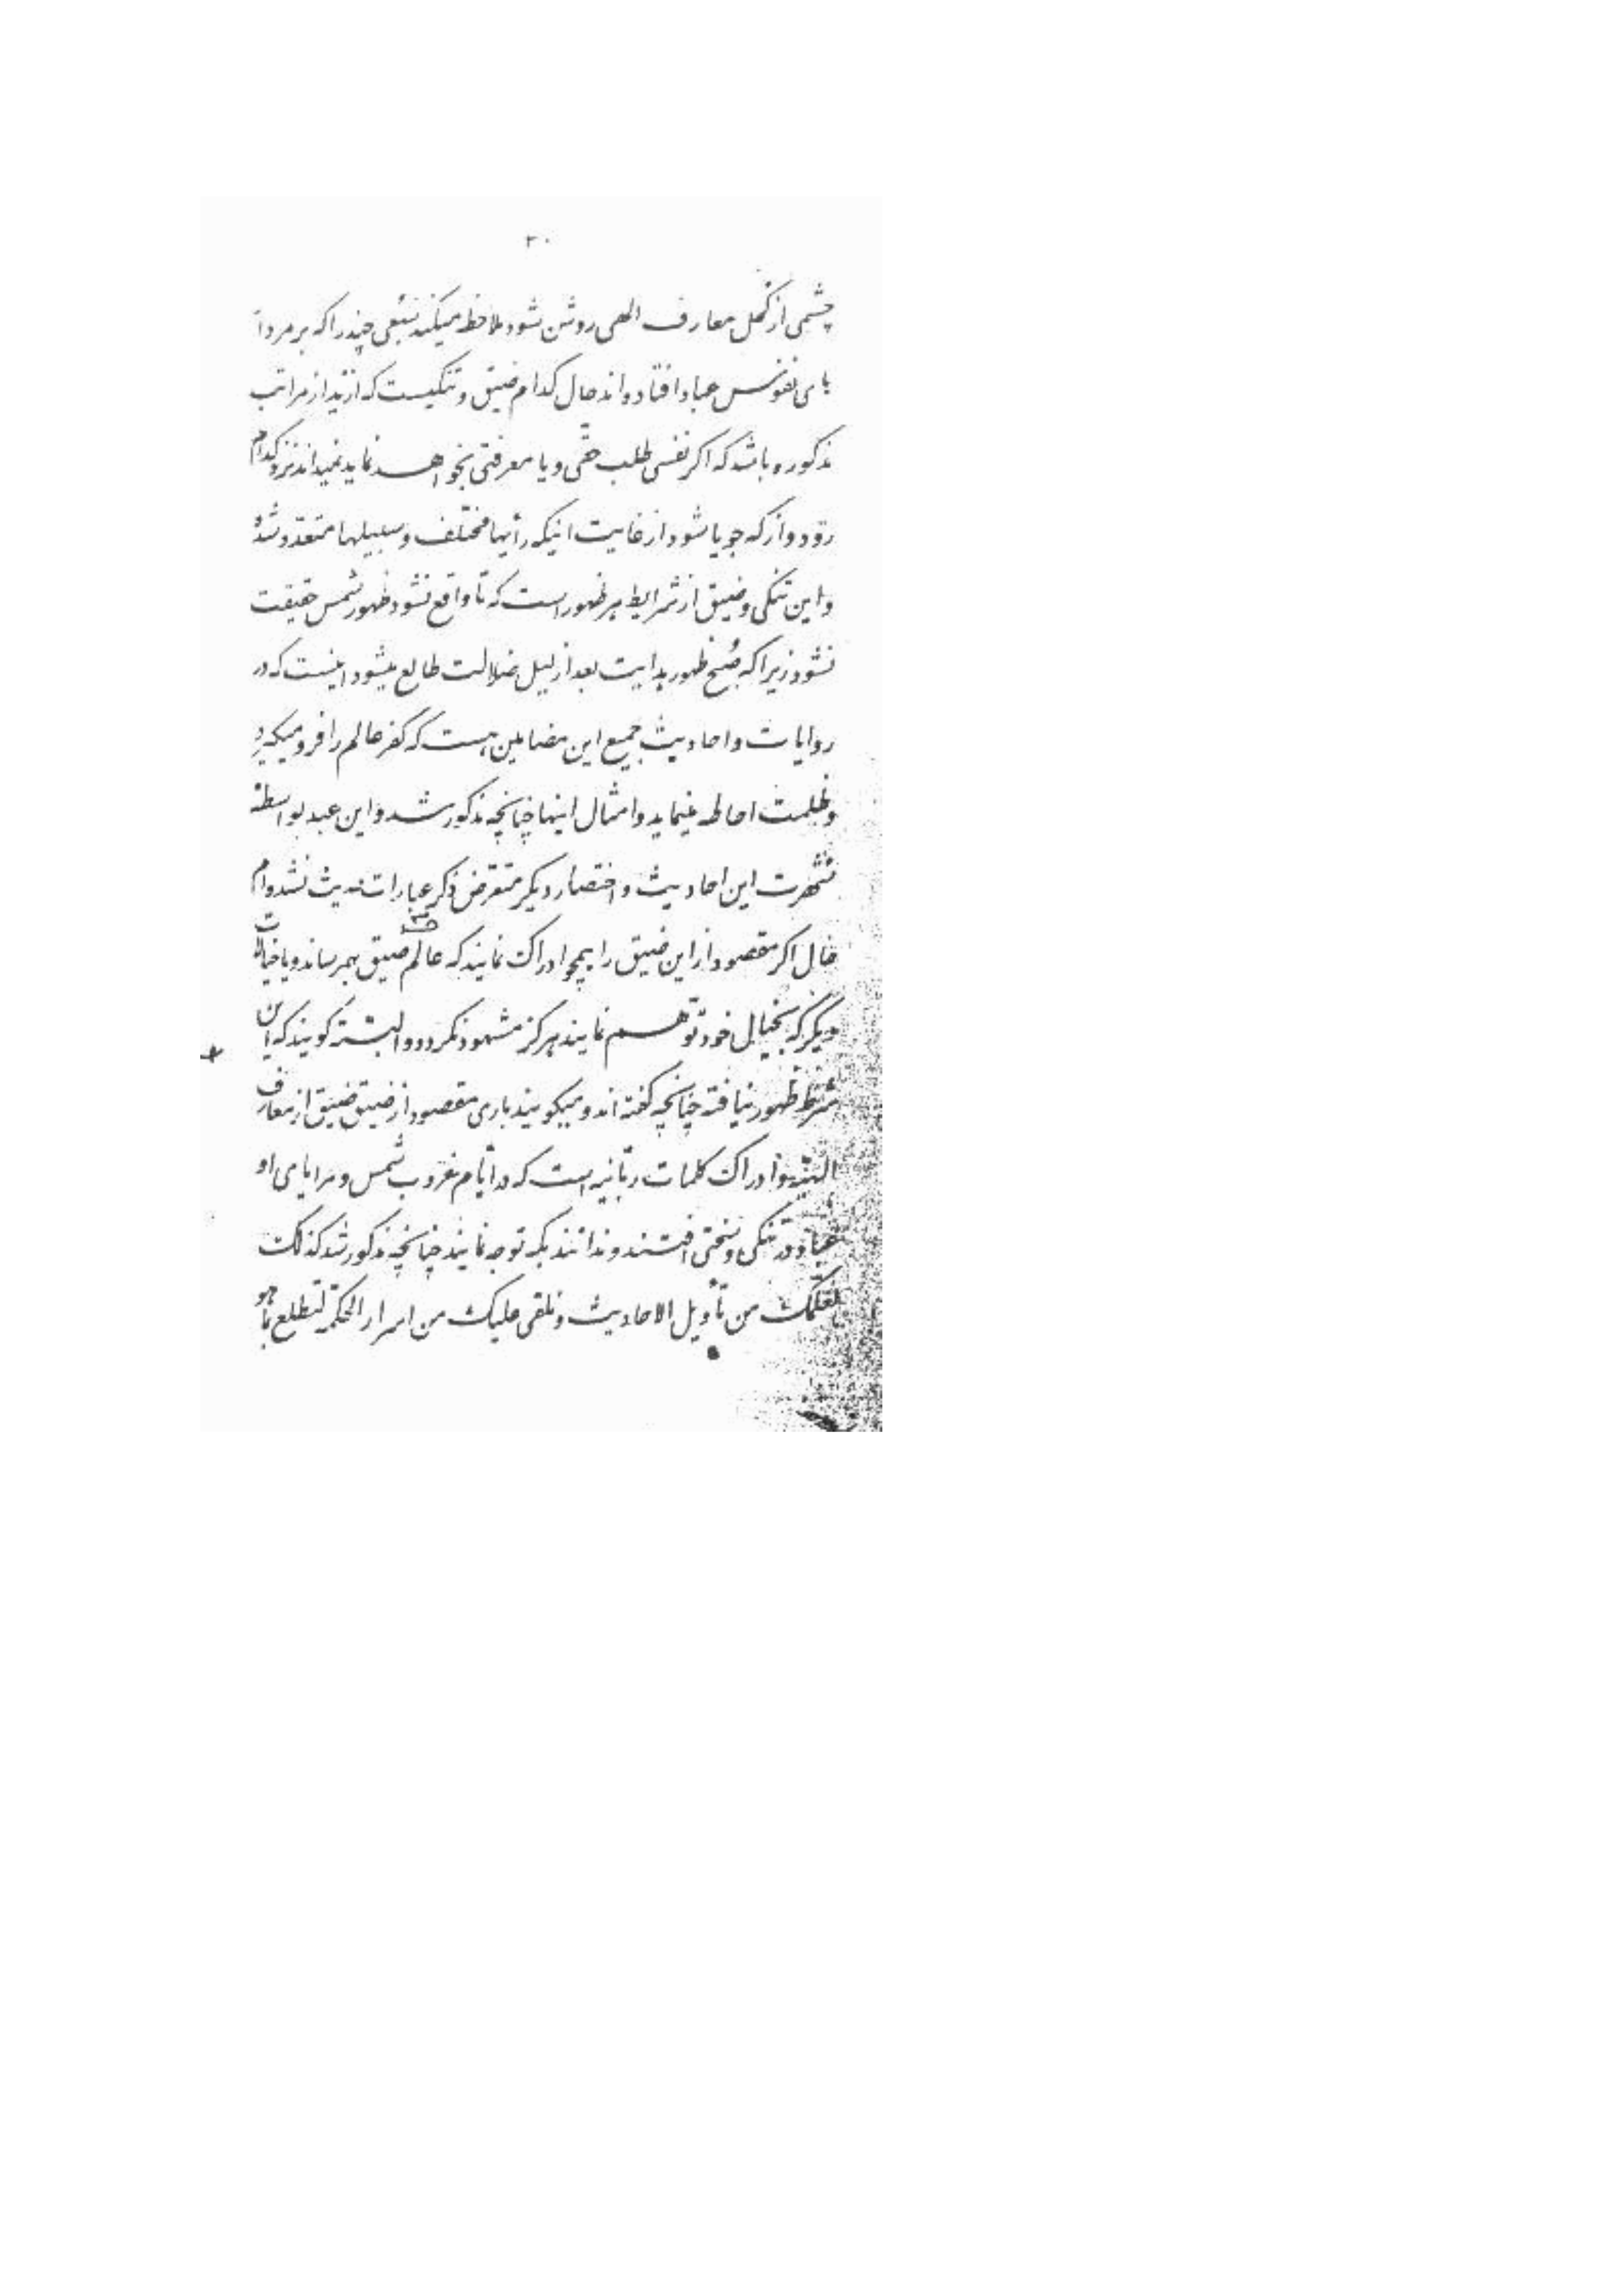 ۳۰
چشمی از کحل معارف الهی روشن شود ملاحظه میکند سبعی چند را که بر مردا
بای نفوس عباد افتاده‌اند حال کدام ضیق و تنگیست که ازید از مراتب
مذکوره باشد که اگر نفسی طلب حقی و یا معرفتی بخواهد نماید نمیداند نزد کدام
رود و از که جویا شود از غایت اینکه رأیها مختلف و سبیلها متعدد شده
و این تنگی و ضیق از شرایط هر ظهور است که تا واقع نشود ظهور شمس حقیقت
نشود زیرا که صبح ظهور هدایت بعد از لیل ضلالت طالع میشود اینست که در
روایات و احادیث جمیع این مضامین هست که کفر عالم را فرو میگیرد
و ظلمت احاطه مینماید و امثال اینها چنانچه مذکور شد و این عبد بواسطه
شهرت این احادیث و اختصار دیگر متعرض ذکر عبارات حدیث نشده‌ام
حال اگر مقصود از این ضیق را همچو ادراک نمایند که عالم ضیق بهم رساند و یا خیالات
دیگر که بخیال خود توهم نمایند هرگز مشهود نگردد و البته گویند که این
شرط ظهور نیافته چنانچه گفته‌اند و میگویند باری مقصود از ضیق ضیق از معارف
الهیه و ادراک کلمات ربانیه است که در ایام غروب شمس و مرایای او
عباد در تنگی و سختی افتند و ندانند بکه توجه نمایند چنانچه مذکور شد کذلک
نعلمک من تأویل الاحادیث و نلقی علیک من اسرار الحکمة لتطلع بما هو